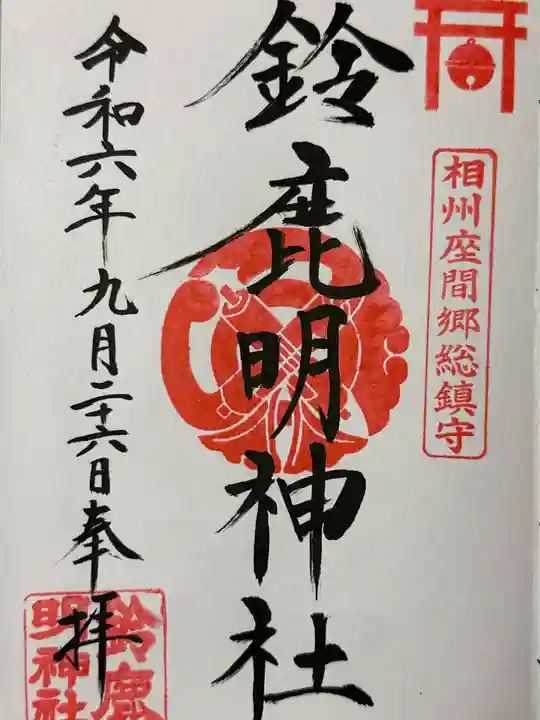 相州座間郷総鎮守
鈴鹿明神社
令和六年九月二十六日奉拝
鈴鹿
明神社